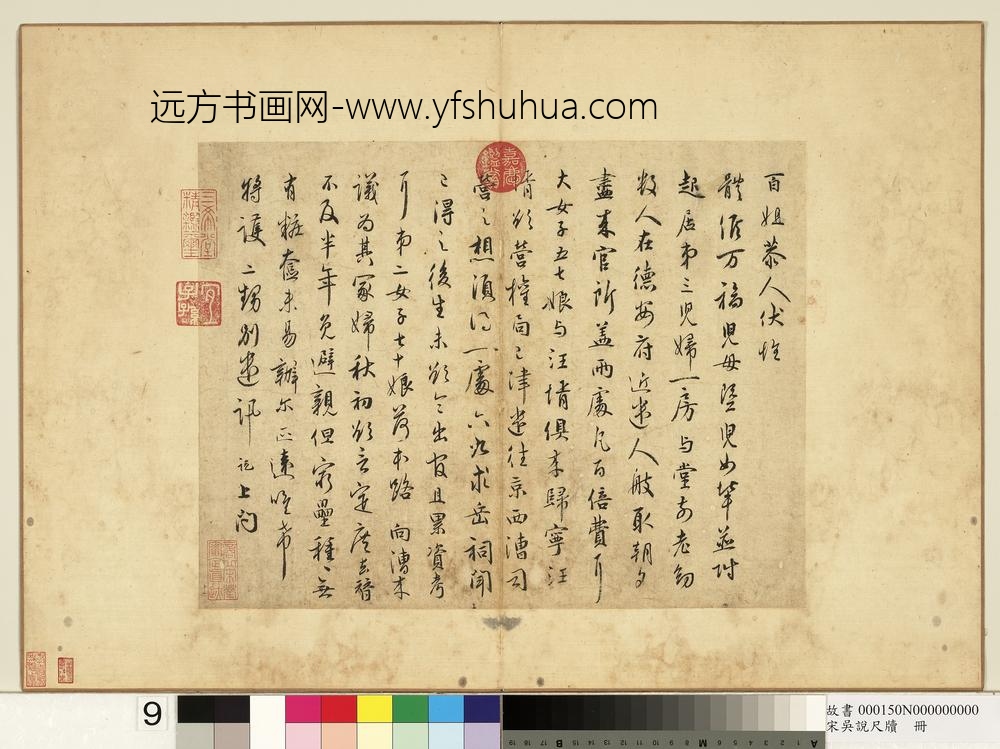 远方书画网-www.yfshuhua.com
百姐恭人伏惟
體候万福兒母墜兒女輩並附
起居弟三兒婦一房与堂前老幼
数人在德安府近遣人般取朝夕
盡來官所蓋兩處凡百倍費耳
大女子五七娘与汪壻俱來歸寧汪
壻欲營權局已津遣往京西漕司
營之想須得一處六九求岳祠聞
已得之後生未欲令出官且累資考
耳弟二女子七十娘荷本路向漕來
議为其冢婦秋初欲言定庶去替
不及半年免避親但窮壘種種無
有粧奩未易辦尔正遠唯希
將護二甥別遣訊 說上問
三希堂
精鑑璽
宜子孫
嘉慶
鑑賞
9
B
M
A
故書 000150N000000000
宋吳說尺牘 冊